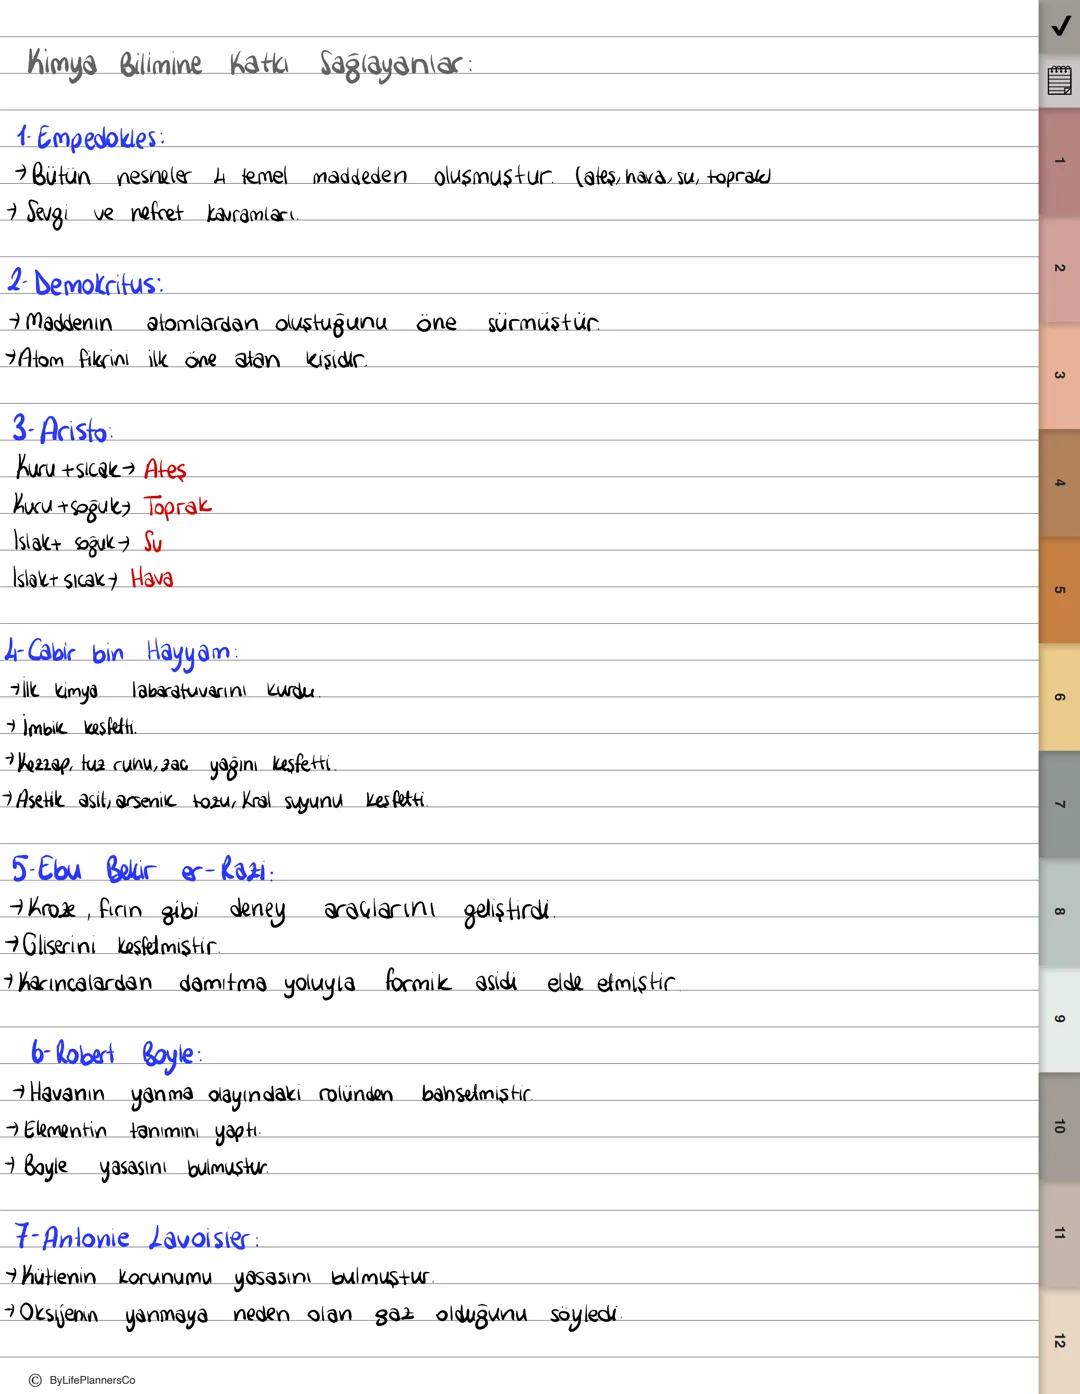 Kimya Bilimine Katkı Sağlayanlar:
1- Empedokles:
→ Bütün nesneler 4 temel maddeden oluşmuştur. (ateş, hava, su, toprak)
→ Sevgi ve nefret kavramları.
2- Demokritus:
→ Maddenin atomlardan oluştuğunu öne sürmüştür.
→ Atom fikrini ilk öne atan kişidir.
3- Aristo:
Kuru + sıcak → Ateş
Kuru + soğuk → Toprak
Islak + soğuk → Su
Islak + sıcak → Hava
4- Cabir bin Hayyam:
→ İlk kimya labaratuvarını kurdu.
→ İmbik keşfetti.
→ Kezzap, tuz runu, zaç yağını keşfetti.
→ Asetik asit, arsenik tozu, Kral suyunu keşfetti.
5- Ebu Bekir er-Razi:
→ Kroze, fırın gibi deney araçlarını geliştirdi.
→ Gliserini keşfetmiştir.
→ Karıncalardan damıtma yoluyla formik asidi elde etmiştir.
6- Robert Boyle:
→ Havanın yanma olayındaki rolünden bahsetmiştir.
→ Elementin tanımını yaptı.
→ Boyle yasasını bulmuştur.
7- Antonie Lavoisier:
→ Kütlenin korunumu yasasını bulmuştur.
→ Oksijenin yanmaya neden olan gaz olduğunu söyledi.
© ByLifePlannersCo
1
2
3
4
5
6
7
8
9
10
11
12